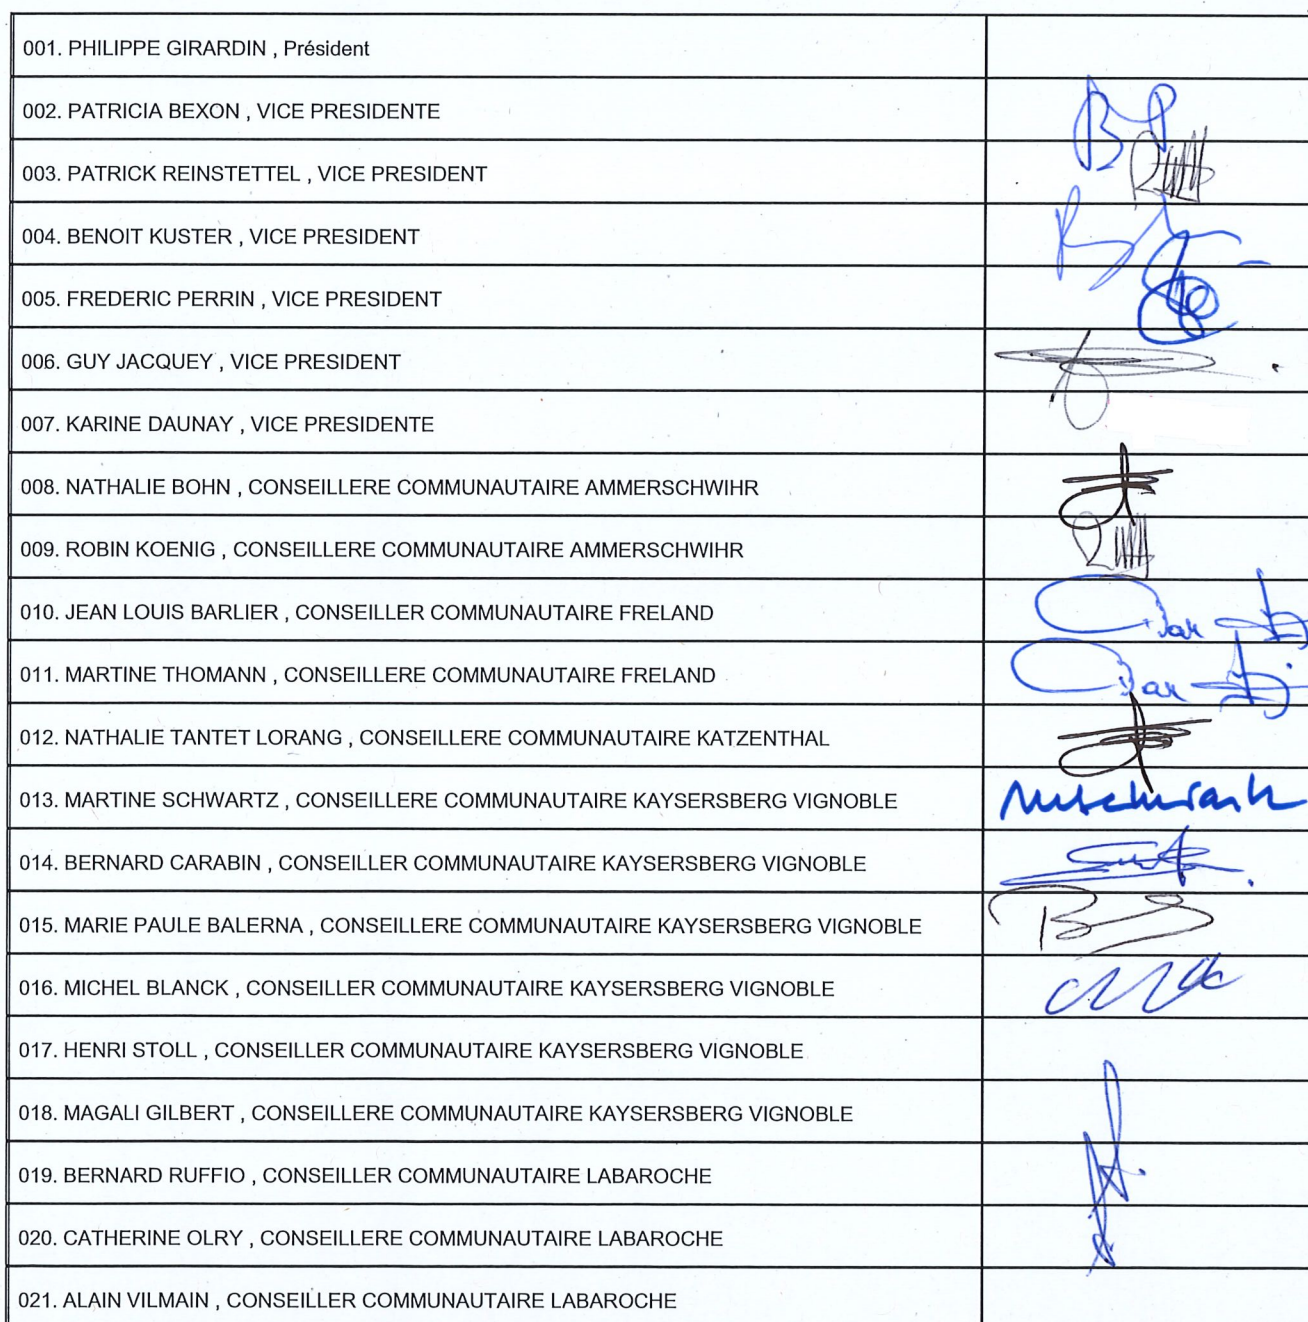 001. PHILIPPE GIRARDIN , Président
002. PATRICIA BEXON , VICE PRESIDENTE
003. PATRICK REINSTETTEL , VICE PRESIDENT
004. BENOIT KUSTER , VICE PRESIDENT
005. FREDERIC PERRIN , VICE PRESIDENT
006. GUY JACQUEY , VICE PRESIDENT
007. KARINE DAUNAY , VICE PRESIDENTE
008. NATHALIE BOHN , CONSEILLERE COMMUNAUTAIRE AMMERSCHWIHR
009. ROBIN KOENIG , CONSEILLERE COMMUNAUTAIRE AMMERSCHWIHR
010. JEAN LOUIS BARLIER , CONSEILLER COMMUNAUTAIRE FRELAND
011. MARTINE THOMANN , CONSEILLERE COMMUNAUTAIRE FRELAND
012. NATHALIE TANTET LORANG , CONSEILLERE COMMUNAUTAIRE KATZENTHAL
013. MARTINE SCHWARTZ , CONSEILLERE COMMUNAUTAIRE KAYSERSBERG VIGNOBLE
014. BERNARD CARABIN , CONSEILLER COMMUNAUTAIRE KAYSERSBERG VIGNOBLE
015. MARIE PAULE BALERNA , CONSEILLERE COMMUNAUTAIRE KAYSERSBERG VIGNOBLE
016. MICHEL BLANCK , CONSEILLER COMMUNAUTAIRE KAYSERSBERG VIGNOBLE
017. HENRI STOLL , CONSEILLER COMMUNAUTAIRE KAYSERSBERG VIGNOBLE
018. MAGALI GILBERT , CONSEILLERE COMMUNAUTAIRE KAYSERSBERG VIGNOBLE
019. BERNARD RUFFIO , CONSEILLER COMMUNAUTAIRE LABAROCHE
020. CATHERINE OLRY , CONSEILLERE COMMUNAUTAIRE LABAROCHE
021. ALAIN VILMAIN , CONSEILLER COMMUNAUTAIRE LABAROCHE